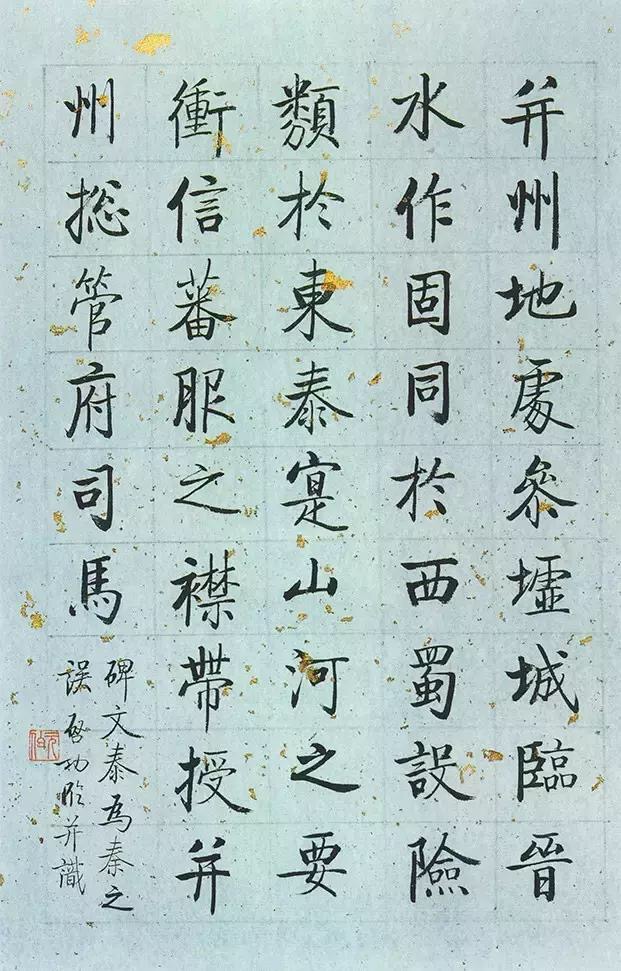 并州地處參墟城臨晉
水作固同於西蜀設險
類於東泰寔山河之要
衝信蕃服之襟帶授并
州揔管府司馬
碑文泰為秦之
誤啓功臨并識
元白